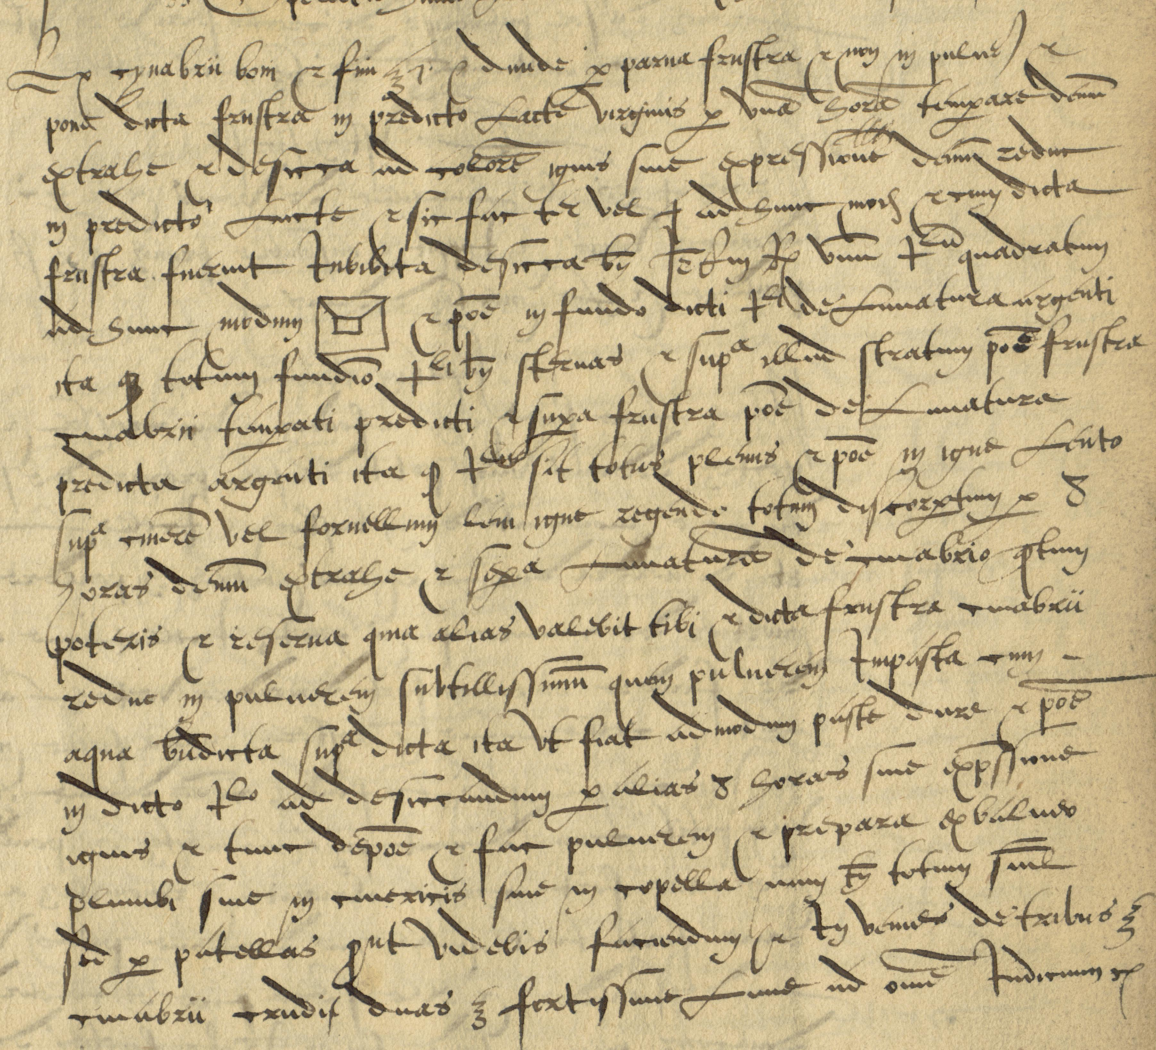 cynabrii boni et fini ʒ deinde per parva frustra et non in pulver et
pone dicta frustra in predicto Lacte virginis per una hora tempare demum
extrahe et desicca ad colore ignis sine expressione demum reduc
in predicto Lacte et sic fac ter vel ad hunc modum et cum dicta
frustra fuerint Inbibita desiccabis unum quadratum
ad hunc modum et pone in fundo dicti de Limatura argenti
ita quod totum fundum sternas et supra illud stratum pone frustra
cinabrii tempati predicti et supra frustra pone de Limatura
predicta argenti ita quod sit totus plenus et pone in igne Lento
supra cinere vel fornellum leni igne regendo totum per 8
horas demum extrahe et sepera Limatura de cinabrio qtum
poteris et reserva quia alias valebit tibi et dicta frustra cinabrii
reduc in pulverem subtillissimum quem pulverem Impasta cum
aqua dicta supra dicta ita ut fiat ad modum paste dure et pone
in dicto ad desiccandum per alias 8 horas sine expssione
ignis et tunc depone et fac pulverem et prepara ex balneo
plumbi sive in cinericis sive in copella totum siml
sed per patellas prout videbis faciendum et venies de tribus ʒ
cinabrii crudi duas ʒ fortissime Lune ad omne Iudicium